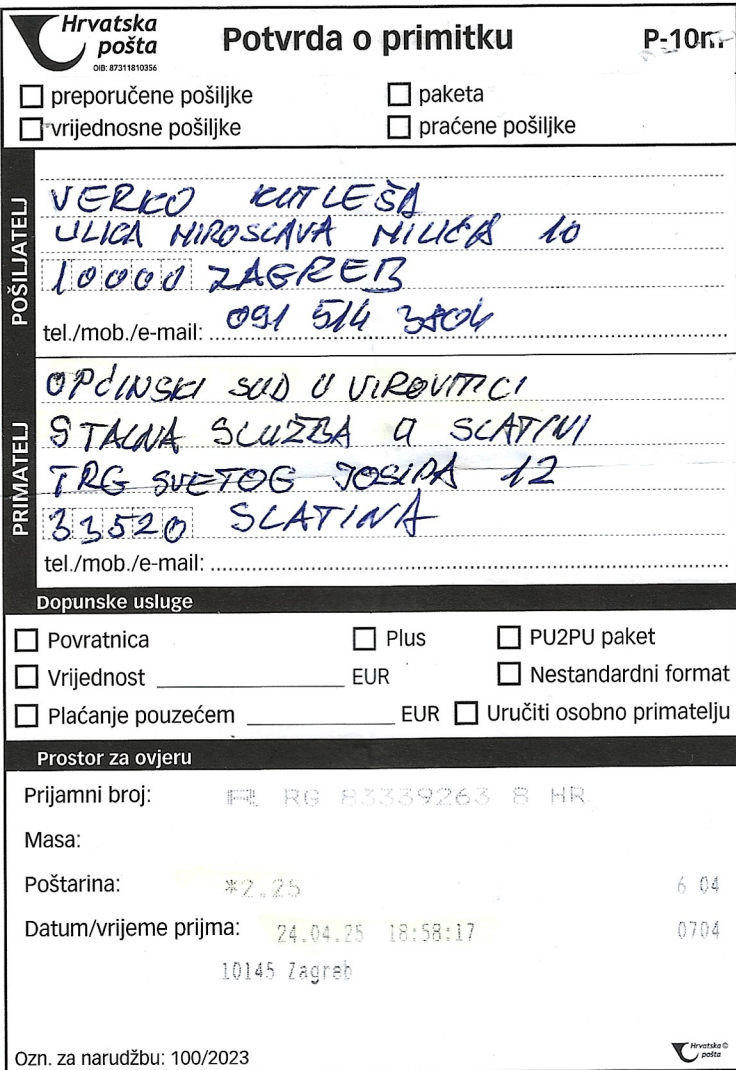 Hrvatska
pošta
OIB: 87311810356
Potvrda o primitku
P-10m
preporučene pošiljke
paketa
vrijednosne pošiljke
praćene pošiljke
POŠILJATELJ
VERKO KUTLEŠA
ULICA MIROSLAVA MILIĆA 10
10000 ZAGREB
tel./mob./e-mail: 091 514
PRIMATELJ
OPĆINSKI SUD U VIROVITICI
STALNA SLUŽBA U SLATINI
TRG SVETOG JOSIPA 12
33520 SLATINA
tel./mob./e-mail:
Dopunske usluge
Povratnica
Plus
PU2PU paket
Vrijednost EUR
Nestandardni format
Plaćanje pouzećem EUR
Uručiti osobno primatelju
Prostor za ovjeru
Prijamni broj: R RG 83339263 8 HR
Masa:
Poštarina: *2.25 6 04
Datum/vrijeme prijma: 24.04.25 18:58:17 0704
10145 Zagreb
Ozn. za narudžbu: 100/2023
Hrvatska
pošta